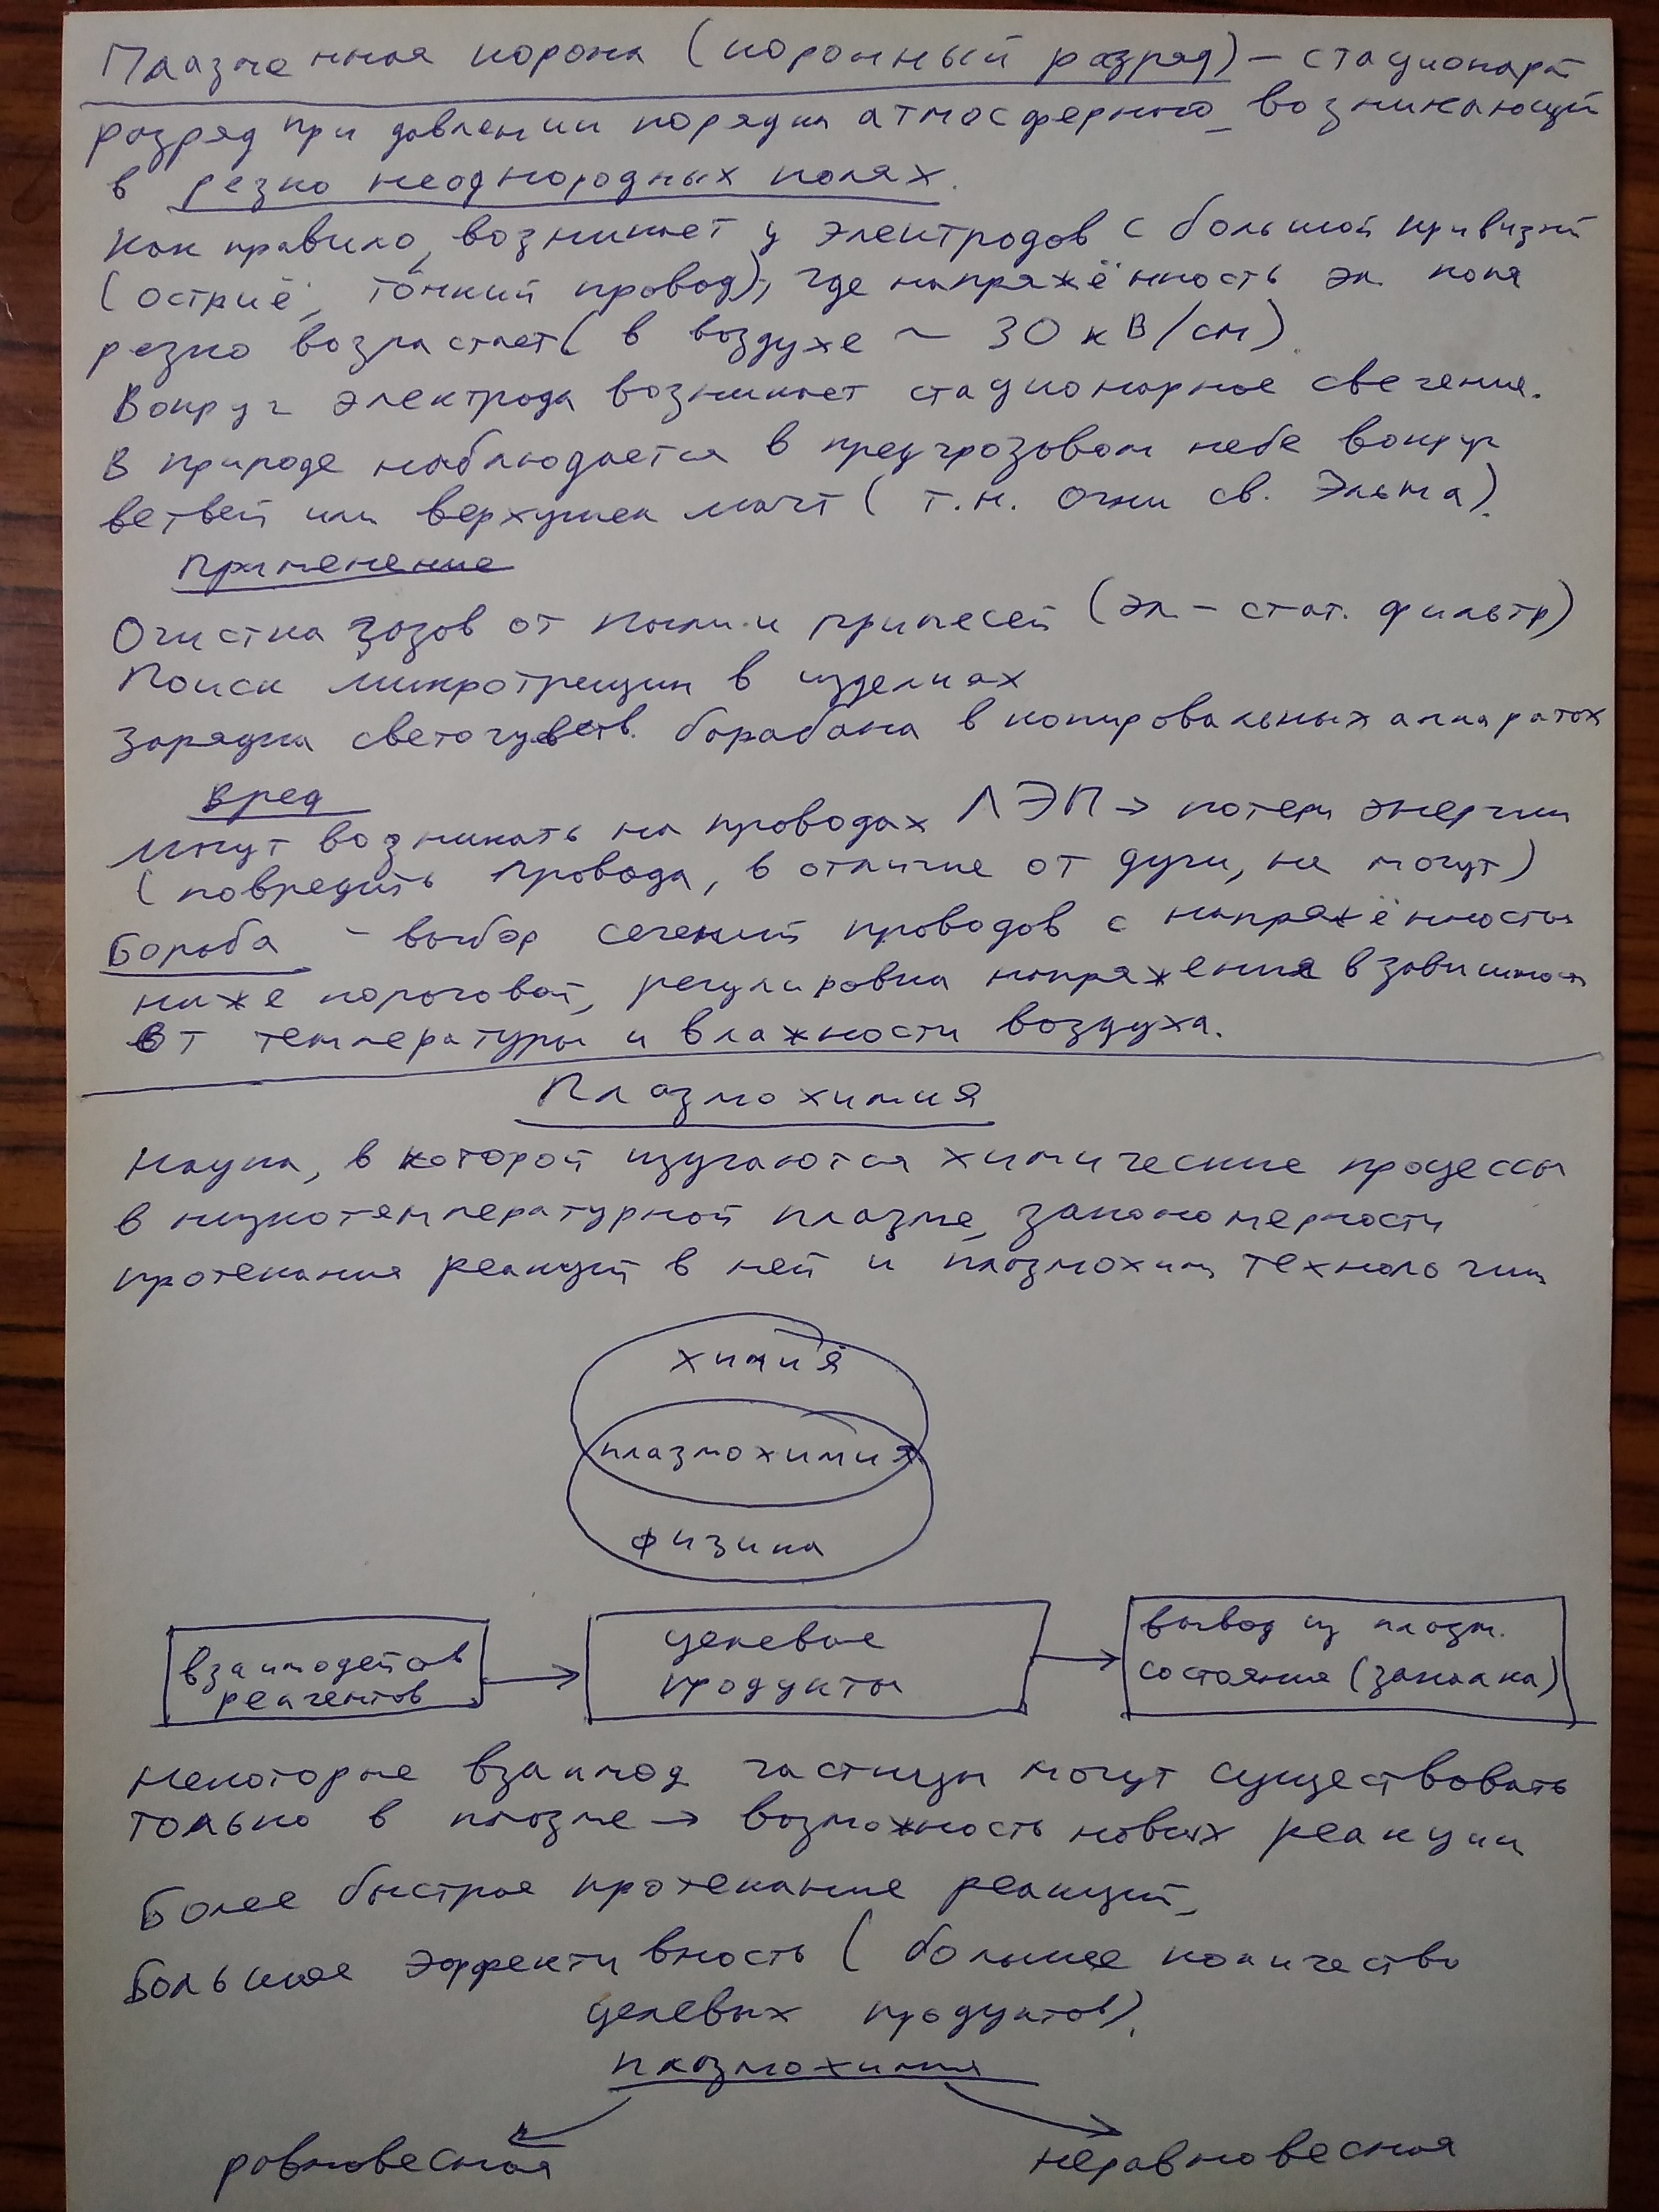 Плазменная корона (коронный разряд) – стационарн
разряд при давлении порядка атмосферного, возникающий
в резко неоднородных полях.
Как правило, возникает у электродов с большой кривизной
(остриё, тонкий провод), где напряжённость эл. поля
резко возрастает (в воздухе ~ 30 кВ/см).
Вокруг электрода возникает стационарное свечение.
В природе наблюдается в предгрозовом небе вокруг
ветвей или верхушек мачт (т.н. Огни св. Эльма).
Применение
Очистка газов от пыли и примесей (эл-стат. фильтр)
Поиск микротрещин в изделиях
Зарядка светочувств. барабана в копировальных аппаратах
Вред
Могут возникать на проводах ЛЭП → потери энергии
(повредить провода, в отличие от дуги, не могут)
Борьба – выбор сечений проводов с напряжённостью
ниже пороговой, регулировка напряжения в зависимости
от температуры и влажности воздуха.
Плазмохимия
Наука, в которой изучаются химические процессы
в низкотемпературной плазме, закономерности
протекания реакций в ней и плазмохим технологии
химия
плазмохимия
физика
взаимодейств
реагентов
целевые
продукты
вывод из плазм.
состояния (закалка)
Некоторые взаимод частицы могут существовать
только в плазме → возможность новых реакции
Более быстрое протекание реакций,
Большая эффективность (большее количество
целевых продуктов).
плазмохимия
равновесная
неравновесная